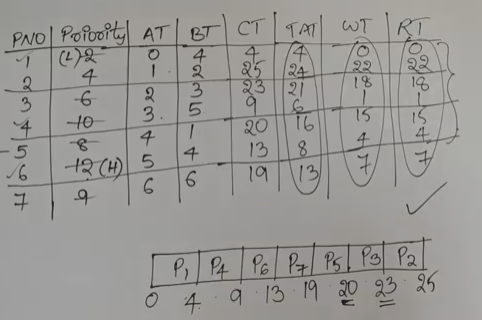 PNO Priority AT BT CT TAT WT RT
1 (L) 2 0 4 4 4 0 0
2 4 1 2 25 24 22 22
3 6 2 3 23 21 18 18
4 10 3 5 9 6 1 1
5 8 4 1 20 16 15 15
6 12 (H) 5 4 13 8 4 4
7 9 6 6 19 13 7 7
P1 P4 P6 P7 P5 P3 P2
0 4 9 13 19 20 23 25